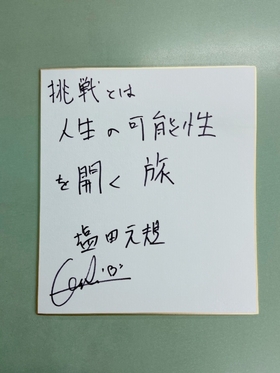 挑戦とは
人生の可能性
を開く旅
塩田元規